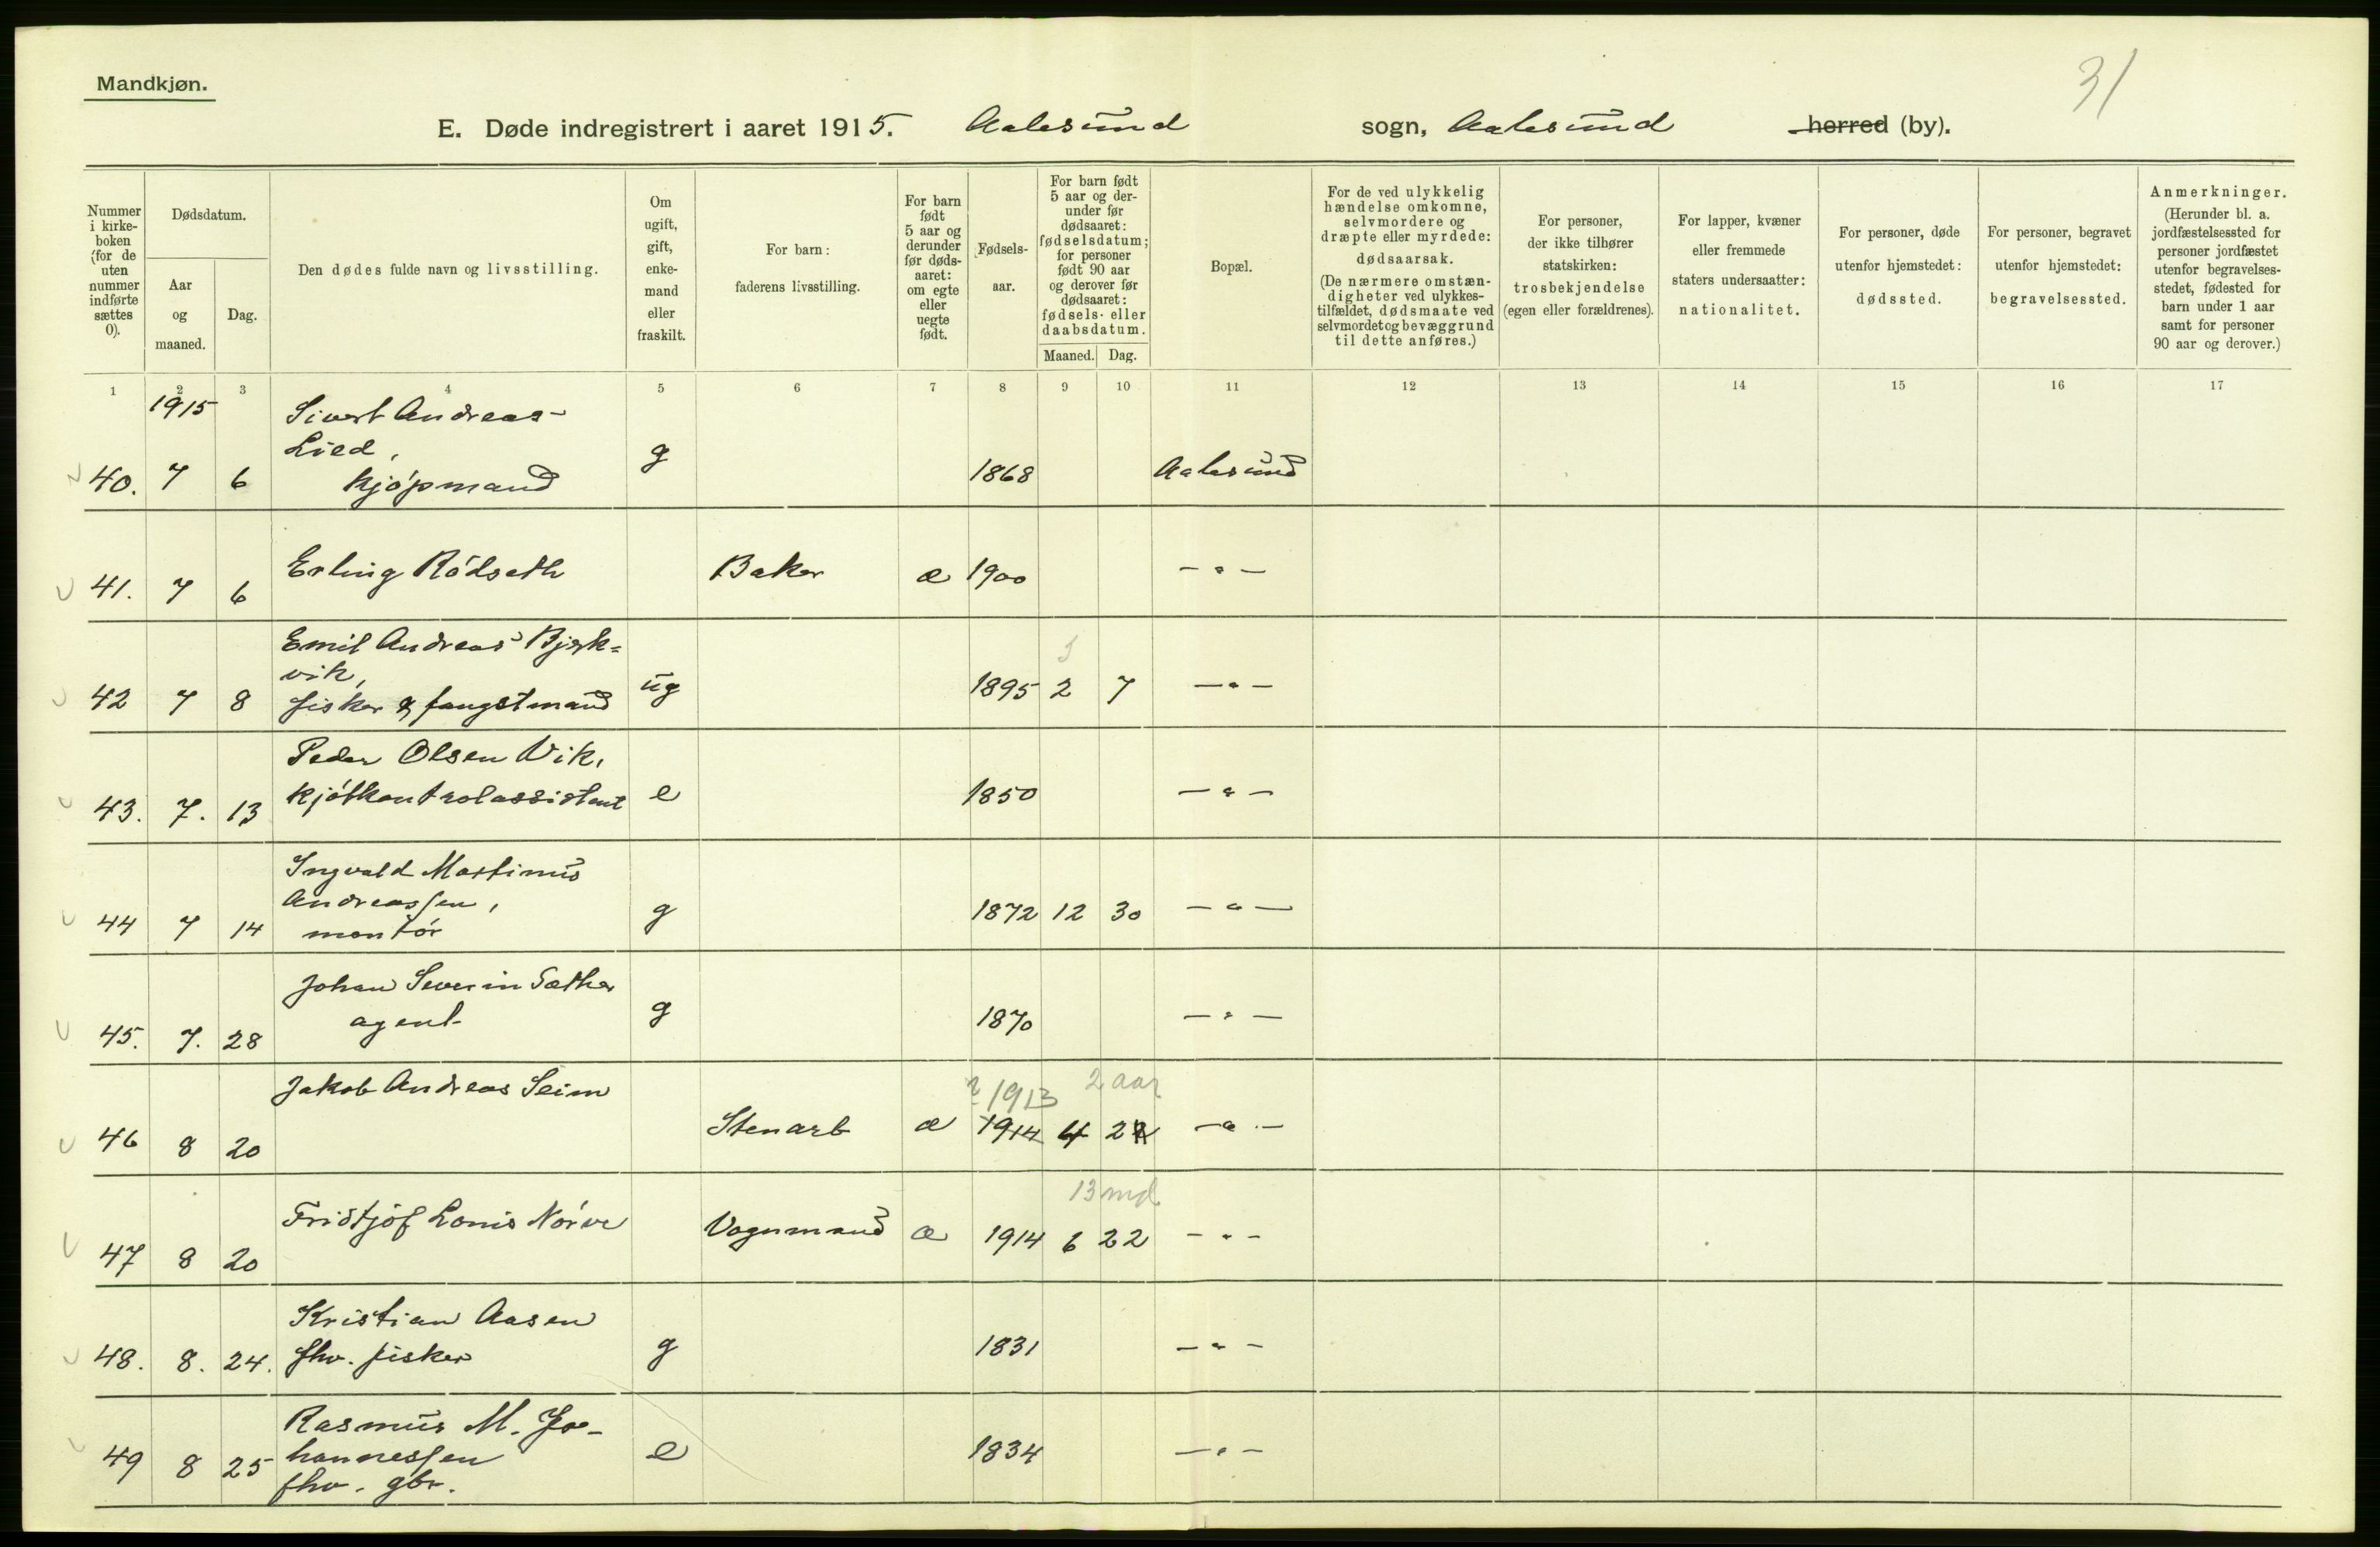 Mandkjøn.
31
E. Døde indregistrert i aaret 1915. Aalesund sogn, Aalesund herred (by).
Nummer i kirke-boken (for de uten nummer indførte sættes 0).
Dødsdatum.
Aar og maaned.
Dag.
Den dødes fulde navn og livsstilling.
Om ugift, gift, enke-mand eller fraskilt.
For barn: faderens livsstilling.
For barn født 5 aar og derunder før døds-aaret: om egte eller uegte født.
Fødsels-aar.
For barn født 5 aar og der-under før dødsaaret: fødselsdatum; for personer født 90 aar og derover før dødsaaret: fødsels- eller daabsdatum.
Maaned. Dag.
Bopæl.
For de ved ulykkelig hændelse omkomne, selvmordere og dræpte eller myrdede: dødsaarsak.
(De nærmere omstæn-digheter ved ulykkes-tilfældet, dødsmaate ved selvmordet og bevæggrund til dette anføres.)
For personer, der ikke tilhører statskirken: trosbekjendelse (egen eller forældrenes).
For lapper, kvæner eller fremmede staters undersaatter: nationalitet.
For personer, døde utenfor hjemstedet: dødssted.
For personer, begravet utenfor hjemstedet: begravelsessted.
Anmerkninger.
(Herunder bl. a. jordfæstelsessted for personer jordfæstet utenfor begravelses-stedet, fødested for barn under 1 aar samt for personer 90 aar og derover.)
1 2 3 4 5 6 7 8 9 10 11 12 13 14 15 16 17
1915
Sivert Andreas
Lied,
40. 7 6 kjøpmand g 1868 Aalesund
41. 7 6 Erling Rødseth Baker æ 1900 - " -
Emil Andreas Bjørk=
vik,
42 7 8 fisker & fangstmand ug 1895 2 7 - " -
Peder Olsen Vik,
43. 7. 13 kjøtkontrolassistent e 1850 - " -
Ingvald Martinus
Andreassen,
44 7 14 montør g 1872 12 30 - " -
Johan Severin Sæther
45. 7. 28 agent g 1870 - " -
Jakob Andreas Seim
1913 2 aar
46 8 20 Stenarb æ 1914 4 - " -
13 md.
47 8 20 Fridtjof Louis Nörve Vognmand æ 1914 6 22 - " -
Kristian Aasen
48. 8. 24. fhv. fisker g 1831 - " -
Rasmus M. Jo-
49 8 25 hannessen e 1834 - " -
fhv. gbr.